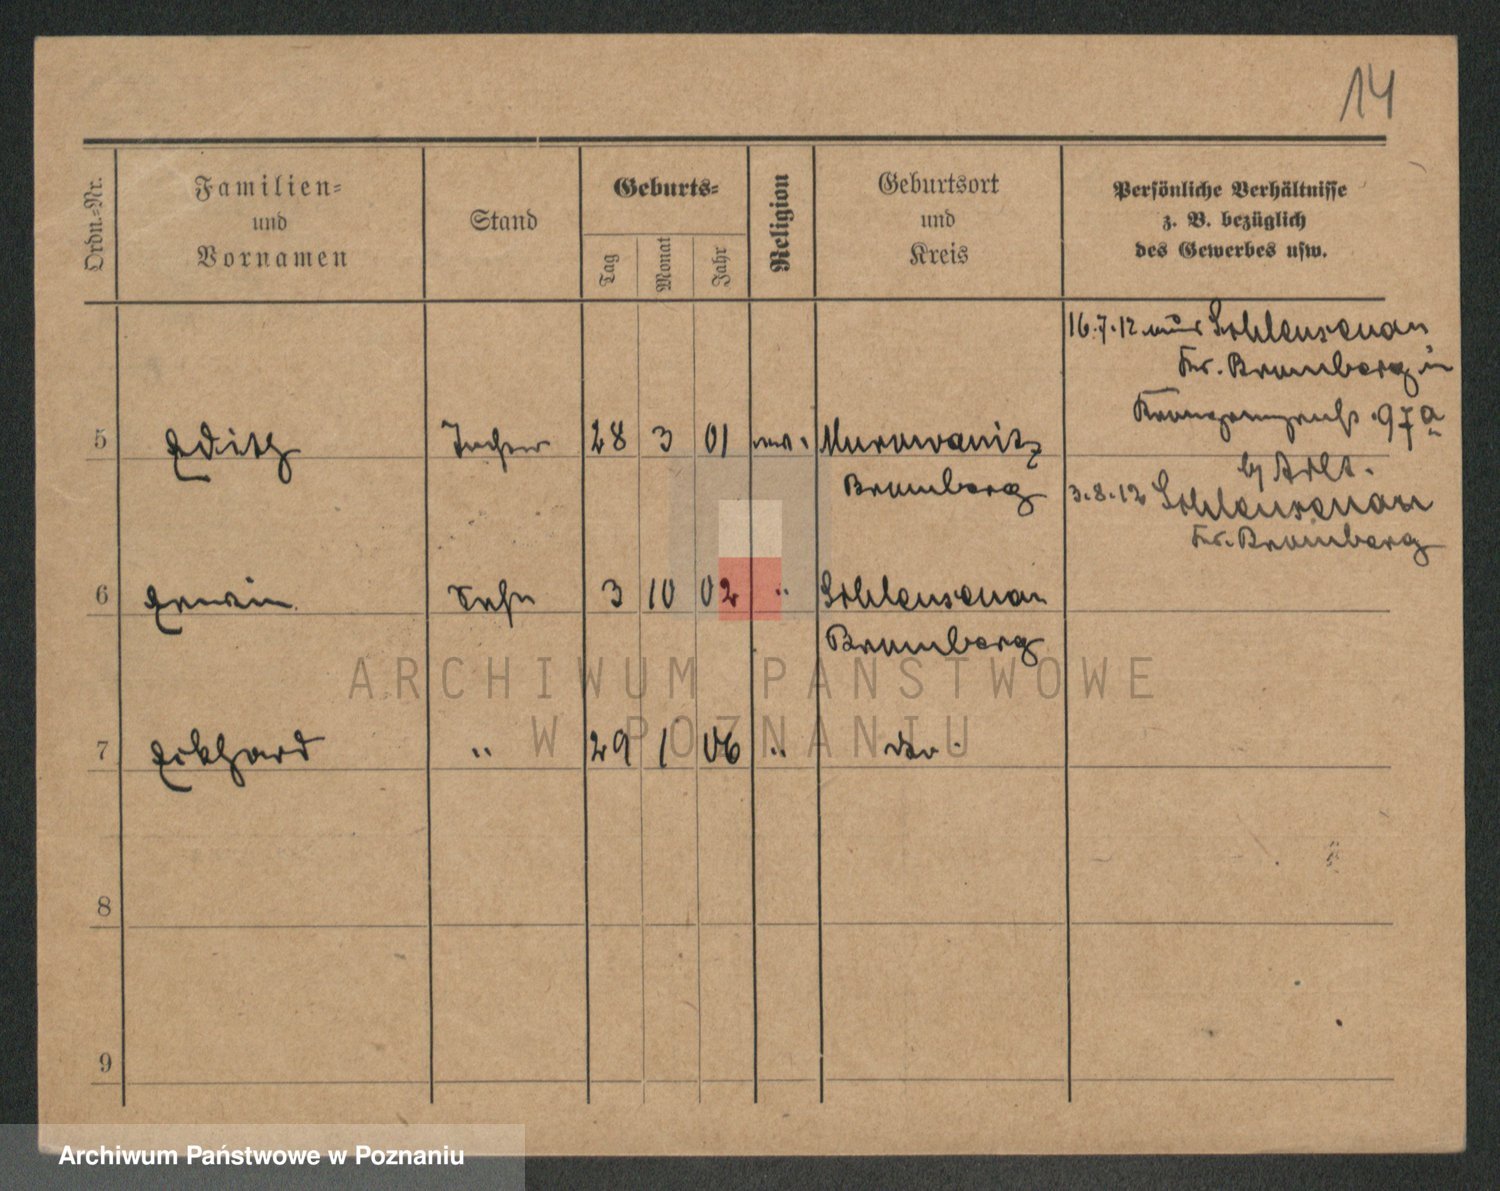 14
Ordn.-Nr.
Familien-
und
Vornamen
Stand
Geburts-
Tag
Monat
Jahr
Religion
Geburtsort
und
Kreis
Persönliche Verhältnisse
z. B. bezüglich
des Gewerbes usw.
16.7.12 aus Schleusenau
Kr. Bromberg in
97a
5 Edith Tochter 28 3 01 ev. Murowanitz
Bromberg
b/ Arlt.
3.8.12 Schleusenau
Kr. Bromberg
6 Erwin Sohn 3 10 02 " Schleusenau
Bromberg
7 Eckhard " 29 1 06 " do.
8
9
ARCHIWUM PAŃSTWOWE
W POZNANIU
Archiwum Państwowe w Poznaniu